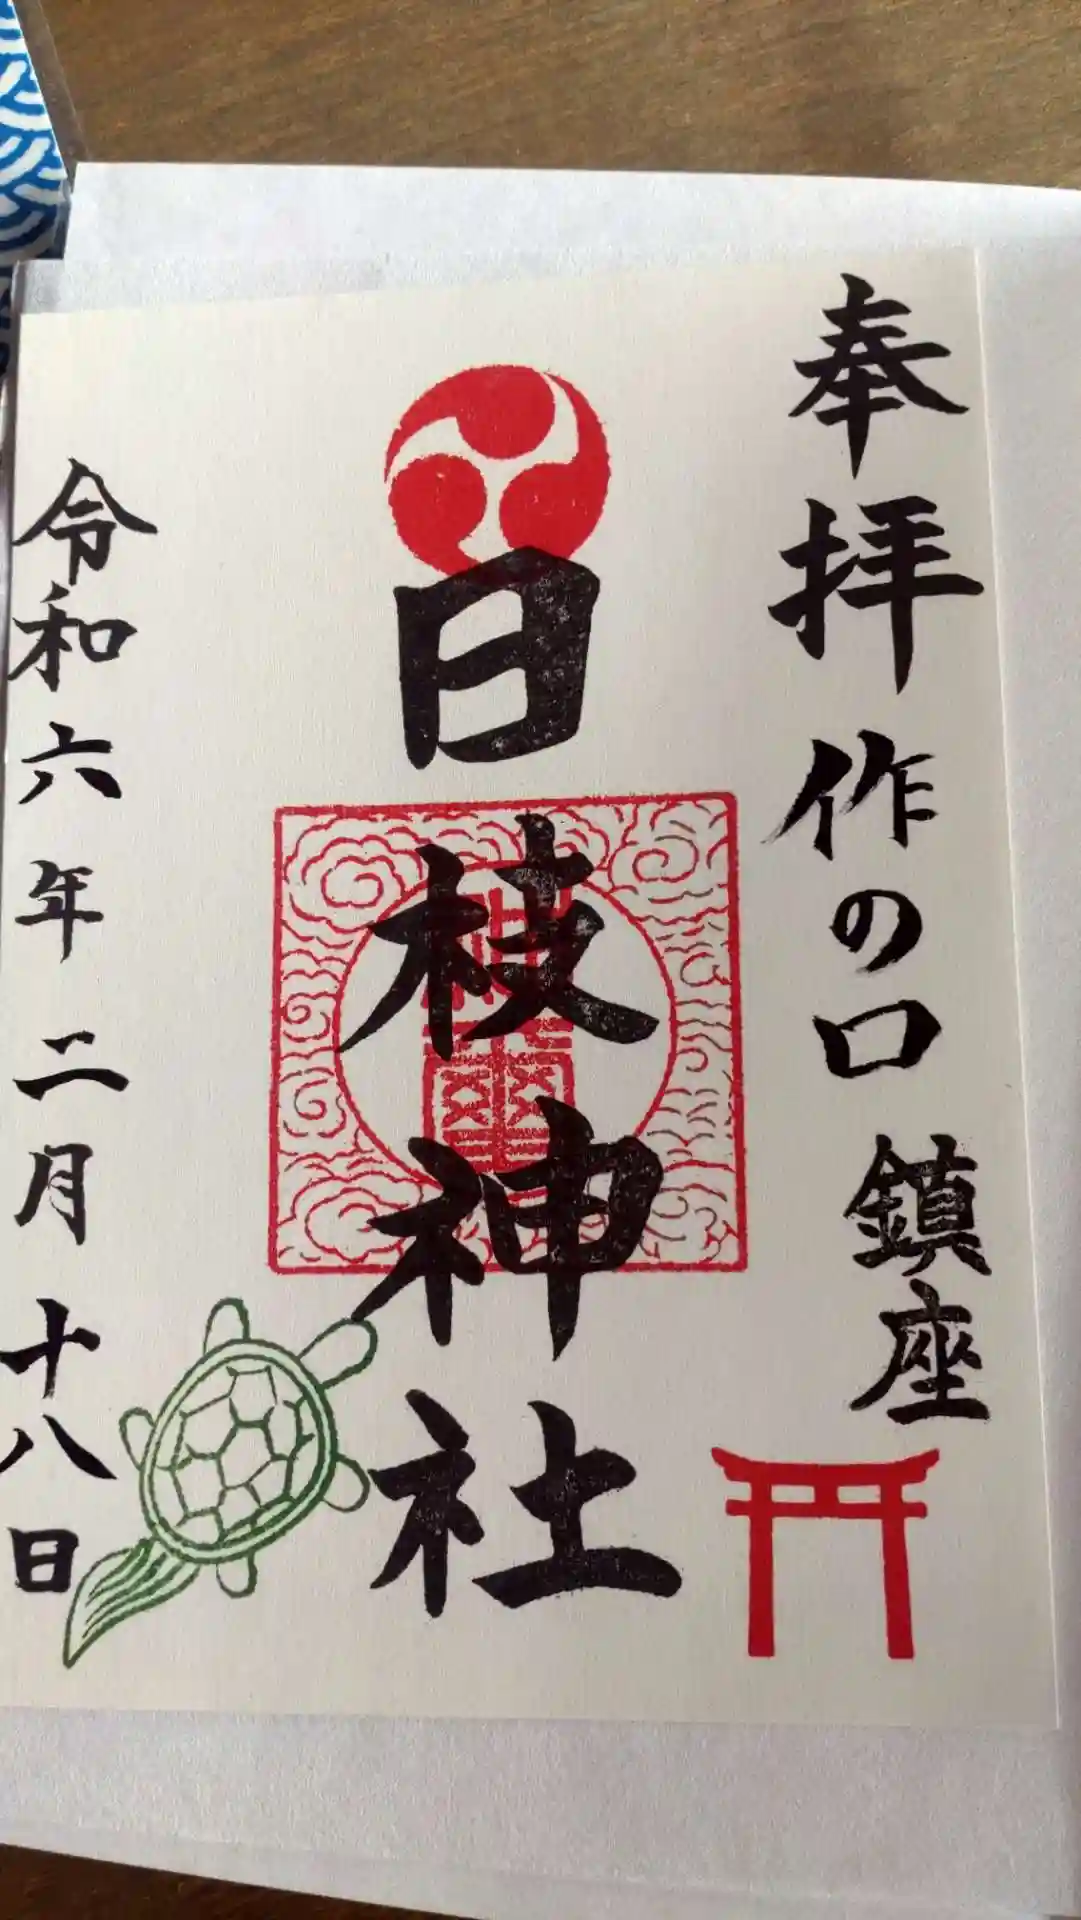 奉拝 作の口 鎮座
日枝神社
令和六年二月十八日